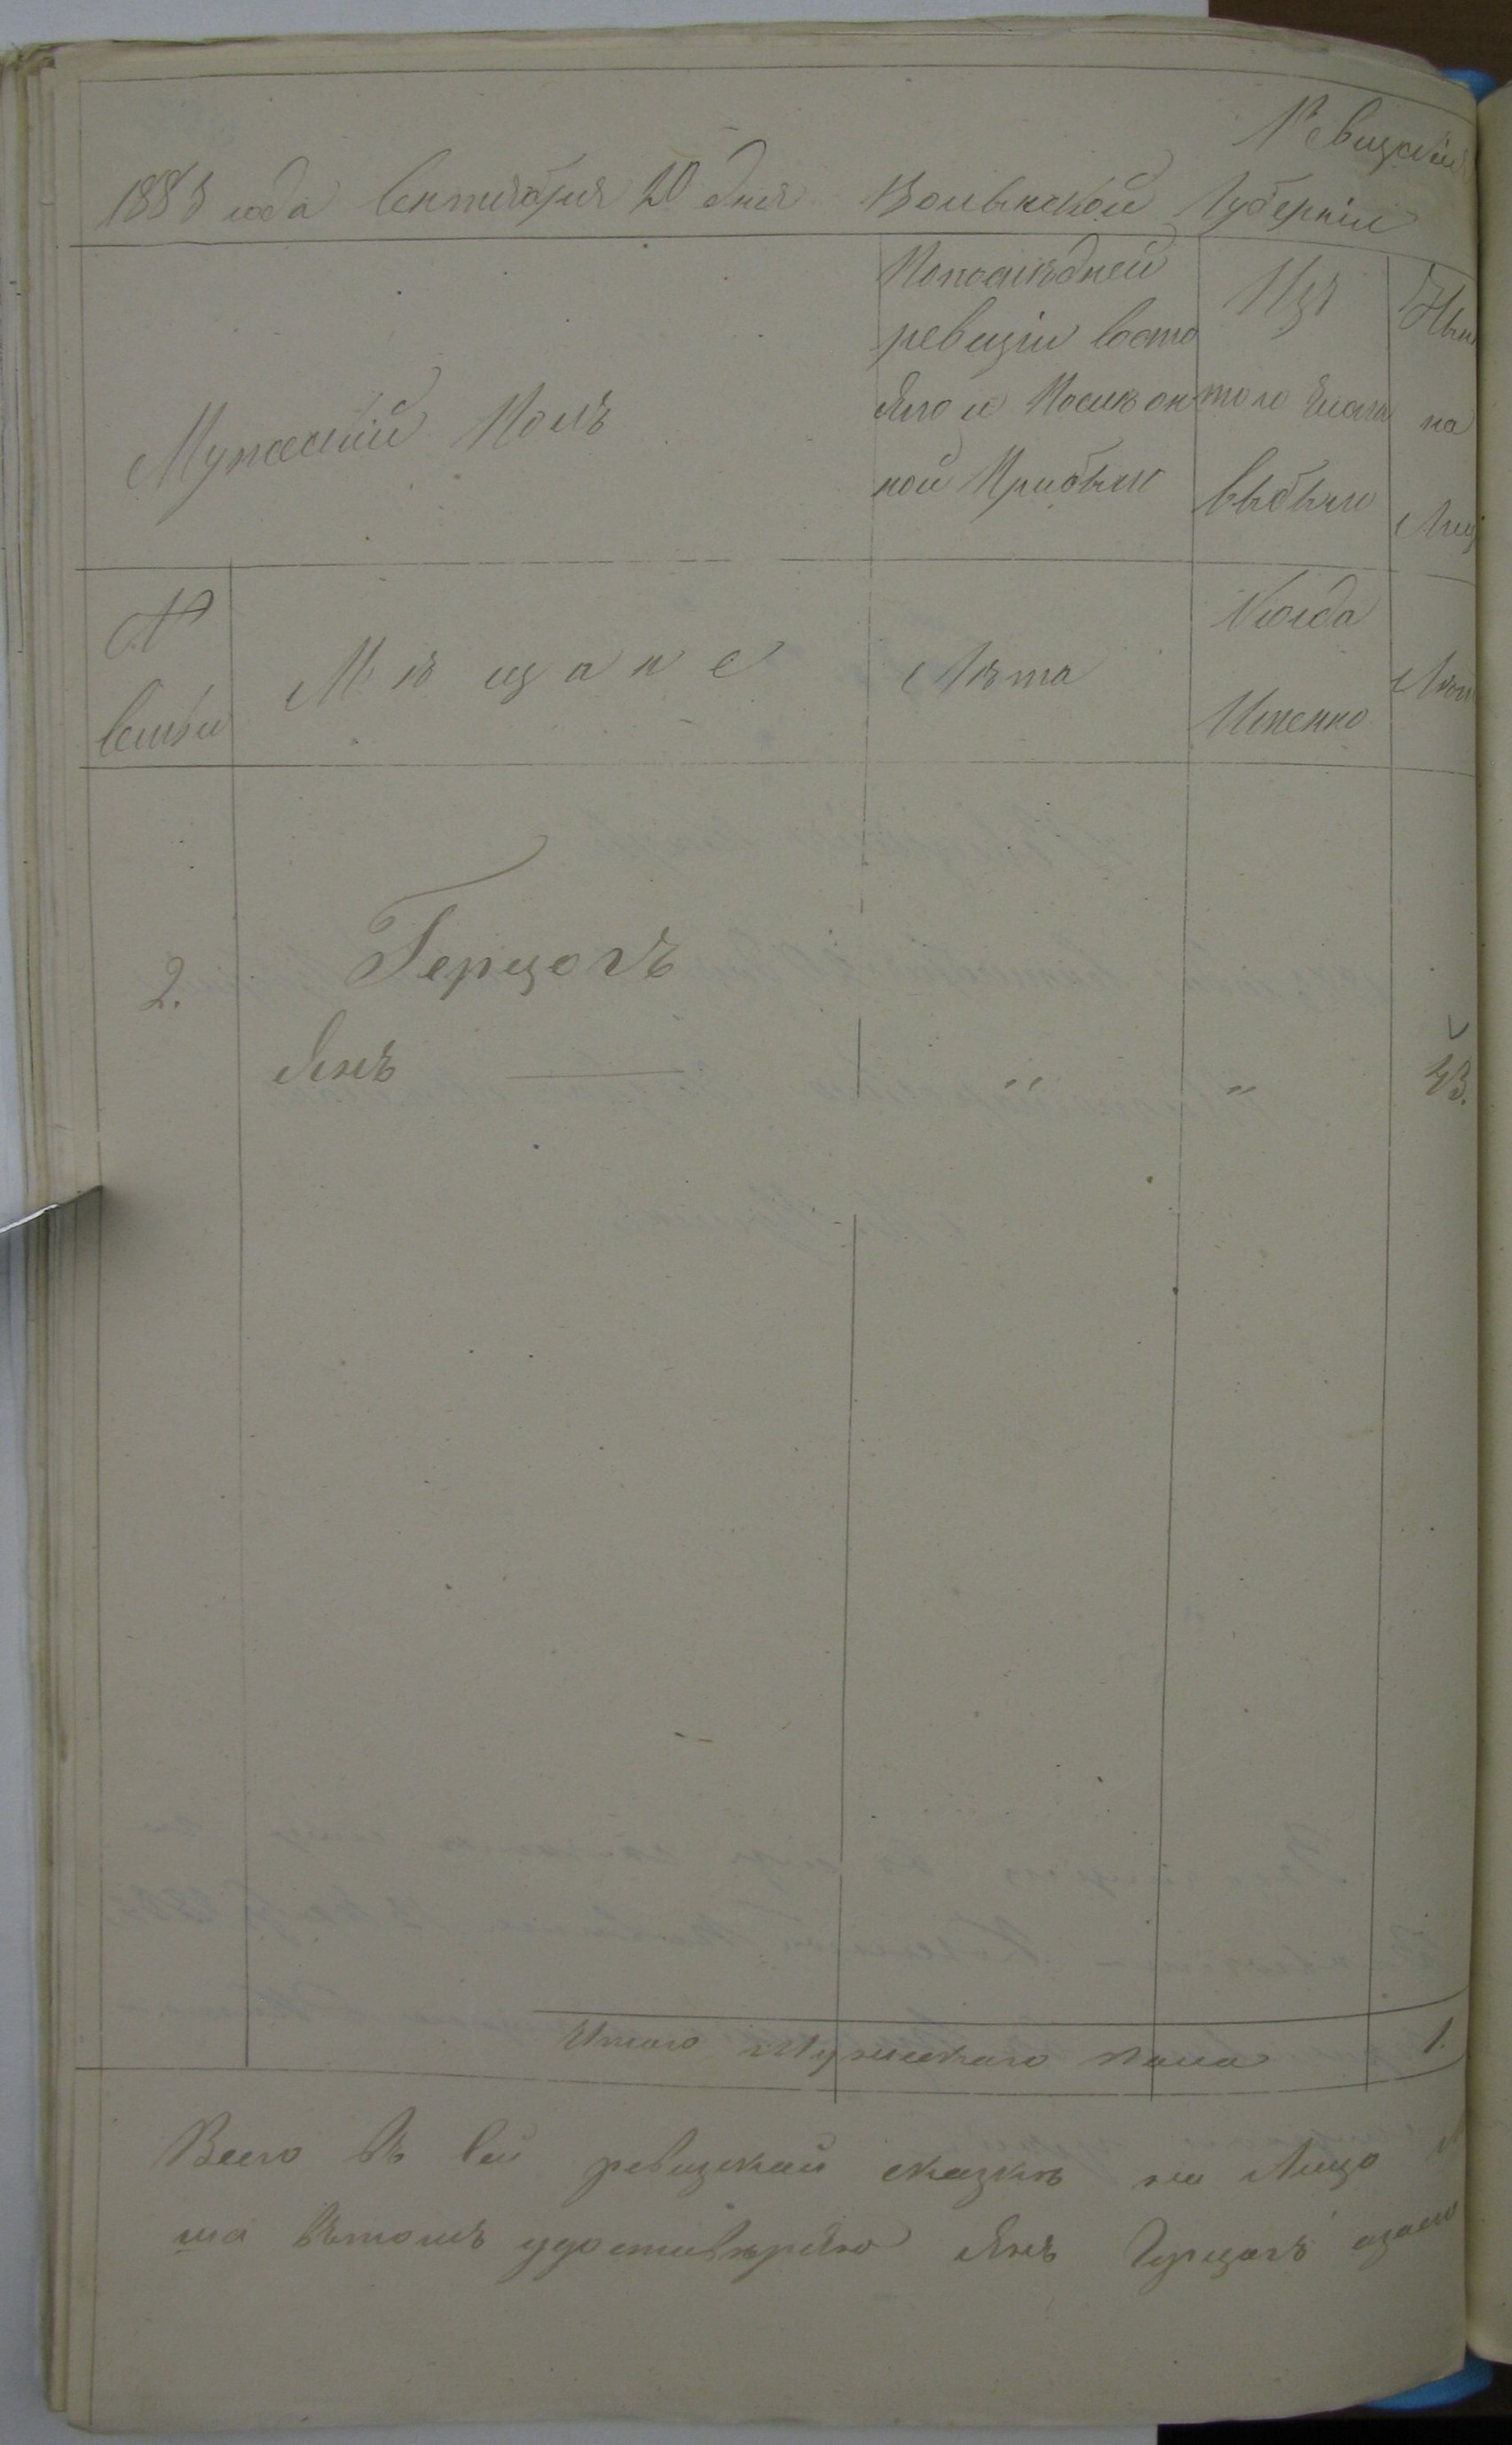 Ревизская
1883 года Сентября 20 дня Волынской Губерніи
Мужескій Полъ
По последней
ревизіи состо
яло и После он
ной Прибыло
Изъ
того числа
выбыло
Нын
на
Лиц
№
семьи
Мѣщане
Лѣта
Когда
Именно
Лѣт
2.
Герцогъ
Янъ
"
"
43.
Итого Мужескаго пола
1.
Всего въ сей ревизской сказкѣ на Лицо
ша вътомъ удостовѣряю Янъ Герцогъ